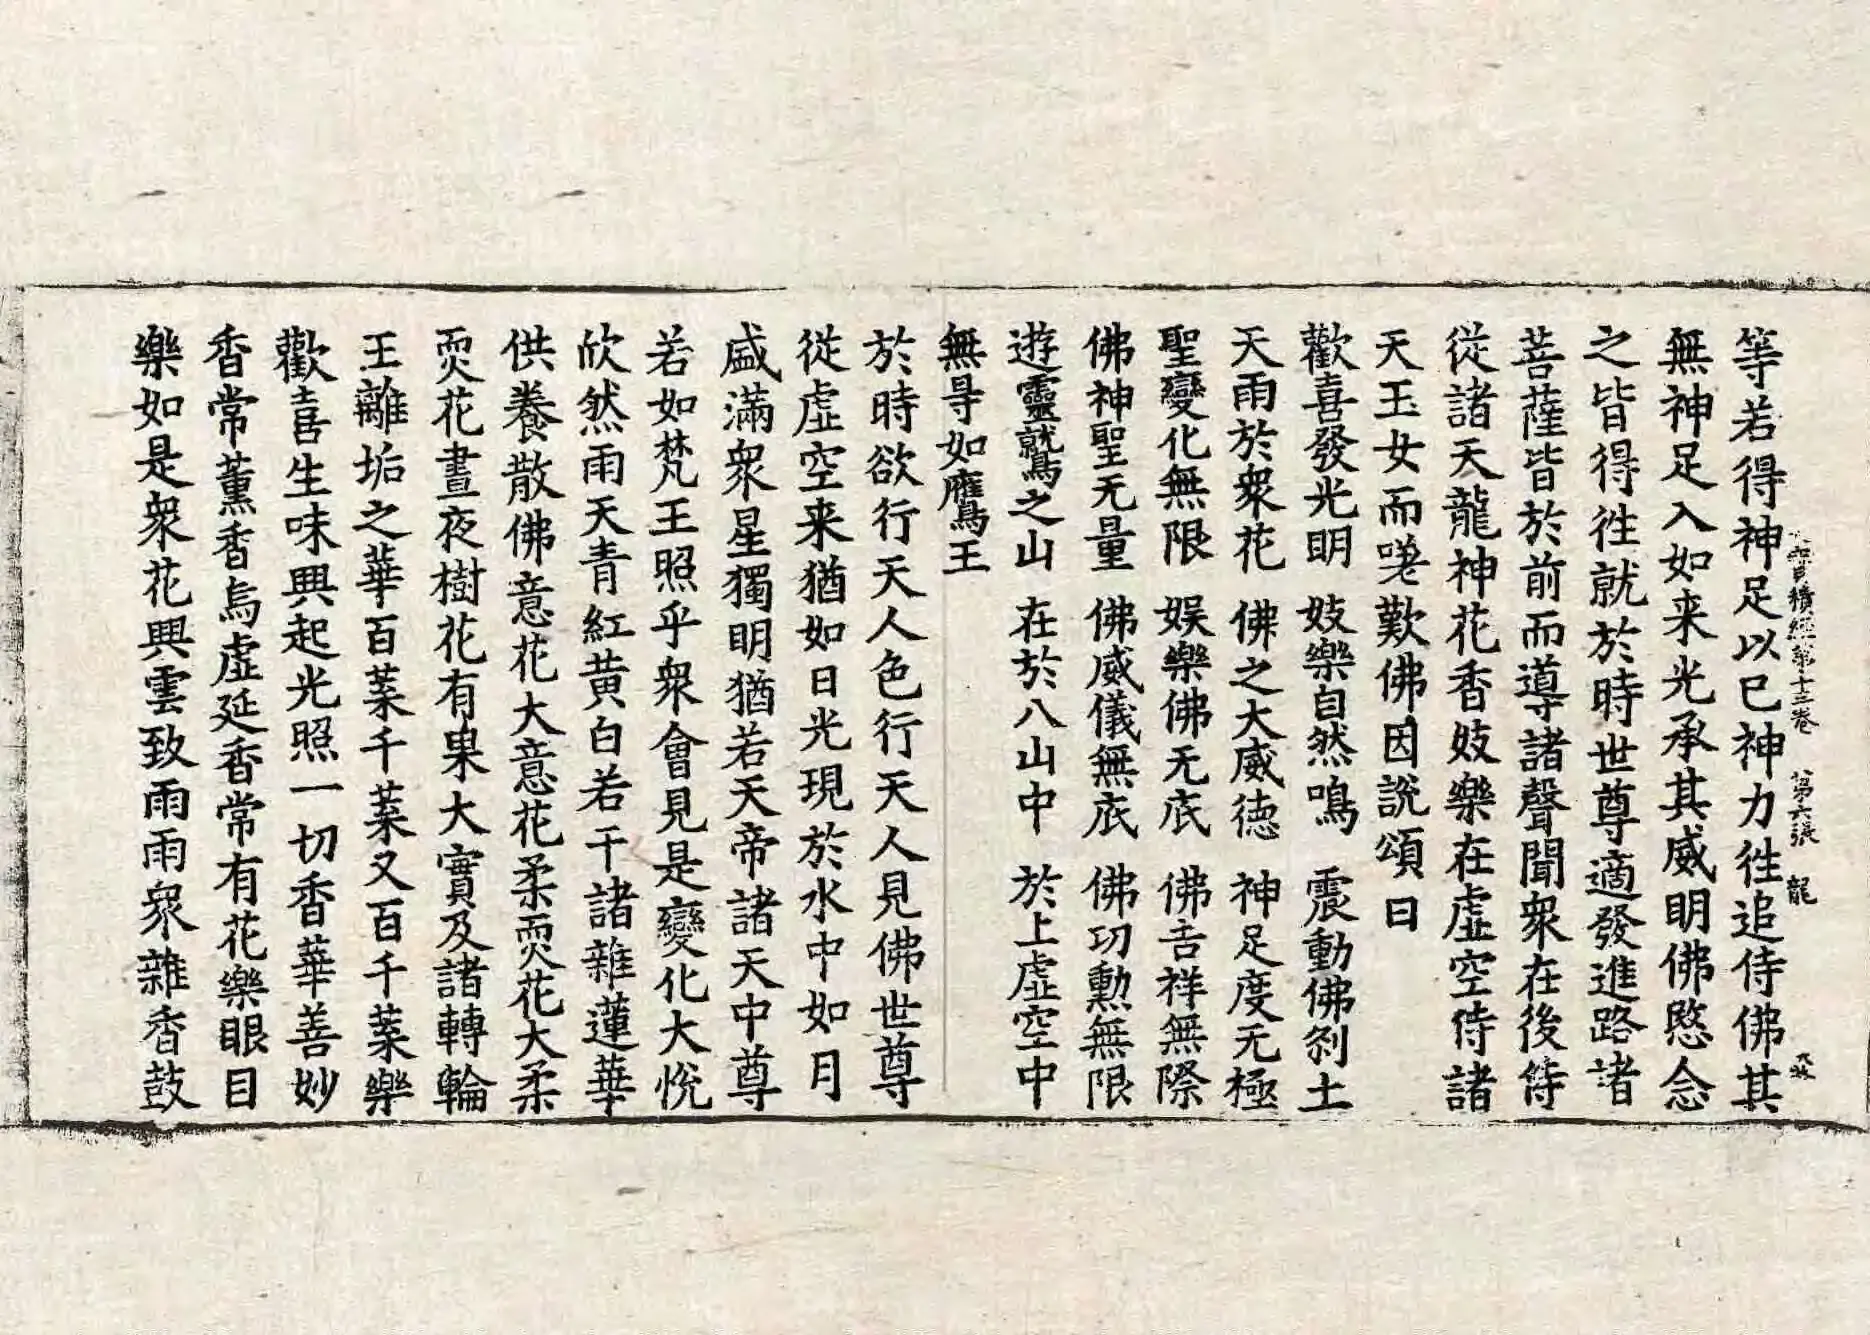 等若得神足以已神力徃追侍佛其
無神足入如来光承其威明佛愍念
之皆得徃就於時世尊適發進路諸
菩薩皆於前而導諸聲聞衆在後侍
從諸天龍神花香妓樂在虛空侍諸
天玉女而嗟歎佛因說頌曰
歡喜發光明 妓樂自然鳴 震動佛刹土
天雨於衆花 佛之大威德 神足度无極
聖變化無限 娱樂佛无底 佛吉祥無際
佛神聖无量 佛威儀無底 佛功勳無限
遊靈鷲之山 在於八山中 於上虛空中
無㝵如鴈王
於時欲行天人色行天人見佛世尊
從虛空来猶如日光現於水中如月
盛滿衆星獨明猶若天帝諸天中尊
若如梵王照乎衆會見是變化大悅
欣然雨天青紅黄白若干諸雜蓮華
供養散佛意花大意花柔耎花大柔
耎花晝夜樹花有果大實及諸轉輪
王離垢之華百葉千葉又百千葉樂
歡喜生味興起光照一切香華善妙
香常薰香烏虛延香常有花樂眼目
樂如是衆花興雲致雨雨衆雜香鼓
積經第十三卷 第六張 龍